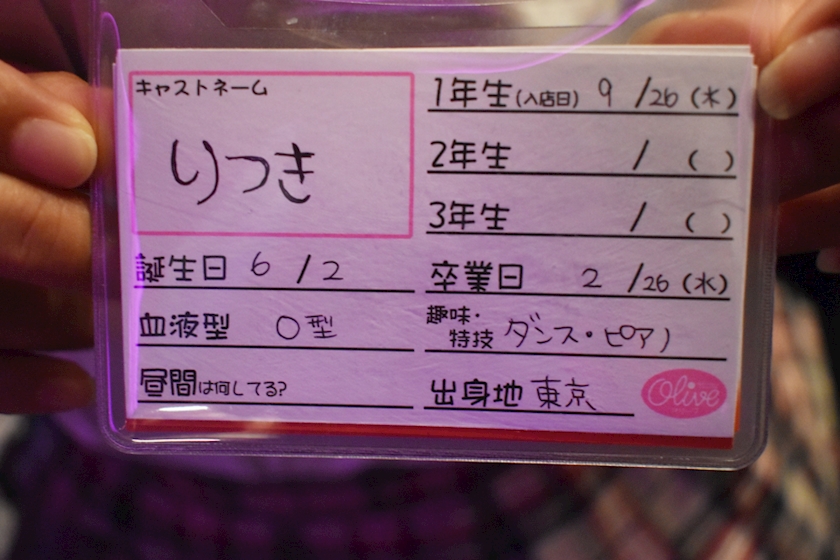 キャストネーム
りつき
1年生(入店日) 9/26(木)
2年生 /( )
3年生 /( )
誕生日 6/2
卒業日 2/26(水)
血液型 O型
趣味・特技 ダンス・ピアノ
昼間は何してる?
出身地 東京
Olive